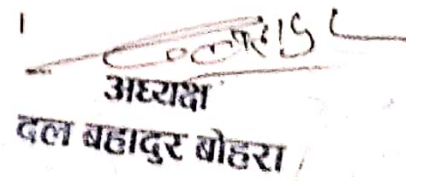 अध्यक्ष
दल बहादुर बोहरा